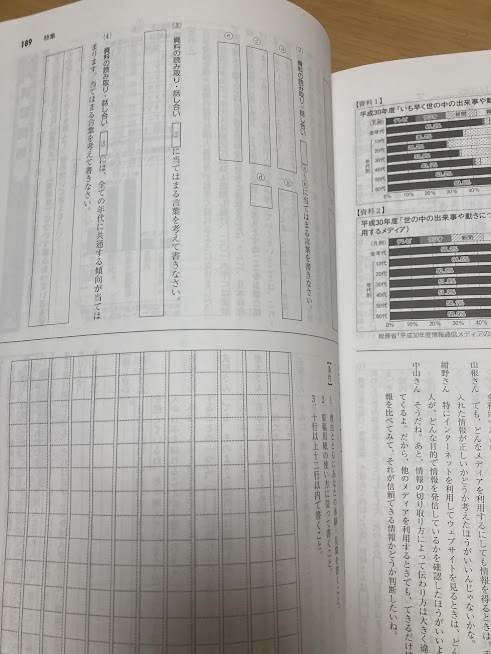 【資料１】
平成30年度「いち早く世の中の出来事や動
(凡例) テレビ ラジオ 新聞
全年代
10代
20代
30代
40代
50代
60代
年代別
0% 10% 20% 30% 40%
【資料２】
平成30年度「世の中の出来事や動きにつ
用するメディア）
(凡例) テレビ ラジオ 新聞
全年代
10代
20代
30代
40代
50代
60代
年代別
0% 10% 20% 30% 40%
総務省「平成30年度情報通信メディアの
山根さん でも、どんなメディアを利用するにしても情報を得るときは、
入れた情報が正しいかどうか考えたほうがいいんじゃないかな。
紺野さん 特にインターネットを利用してウェブサイトを見るときは、どん
人が、どんな目的で情報を発信しているかを確認したほうがいいよ
中山さん そうだね。あと、情報の切り取り方によって伝わり方は大きく違
てくるよ。だから、他のメディアを利用するときでも、できるだけ
報を比べてみて、それが信頼できる情報かどうか判断したいね。
に当てはまる言葉を書きなさい。
資料の読み取り・話し合い
ⓐ
ⓑ
ⓒ
ⓓ
ⓔ
⑶ 資料の読み取り・話し合い
に当てはまる言葉を考えて書きなさい。
⑷ 資料の読み取り・話し合い
には、全ての年代に共通する傾向が当ては
まります。当てはまる言葉を考えて書きなさい。
【条件】
2 原稿用紙の使い方に従って書くこと。
3 十行以上十二行以内で書くこと。
189 特集